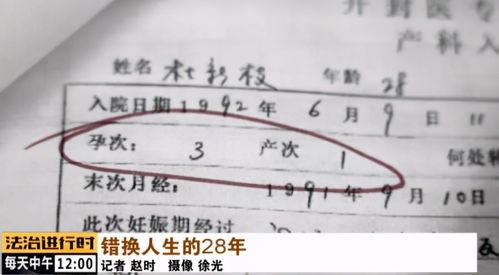 开封医专
产科入
姓名 杜新枝 年龄 28
入院日期 1992 年 6 月 9 日 11
孕次: 3 产次 1 何处转
末次月经: 1991 年 9 月 10 日
此次妊娠期经过
法治进行时
每天中午 12:00
错换人生的28年
记者 赵时 摄像 徐光